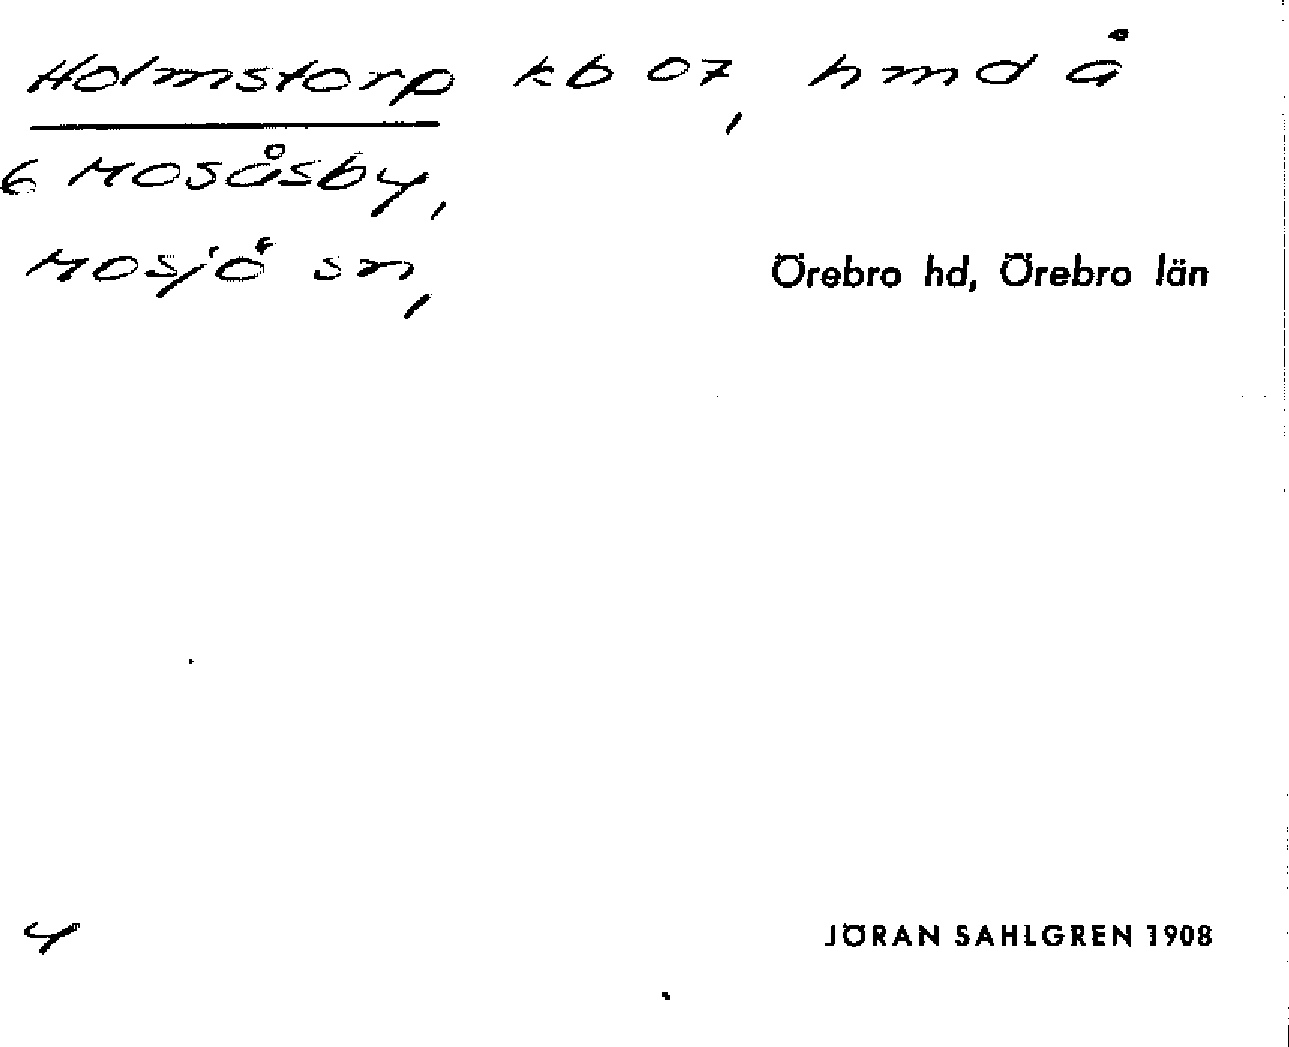 Holmstorp kb 07, hmd å
6 Mosåsby,
Mosjö sn, Örebro hd, Örebro län
4
JÖRAN SAHLGREN 1908